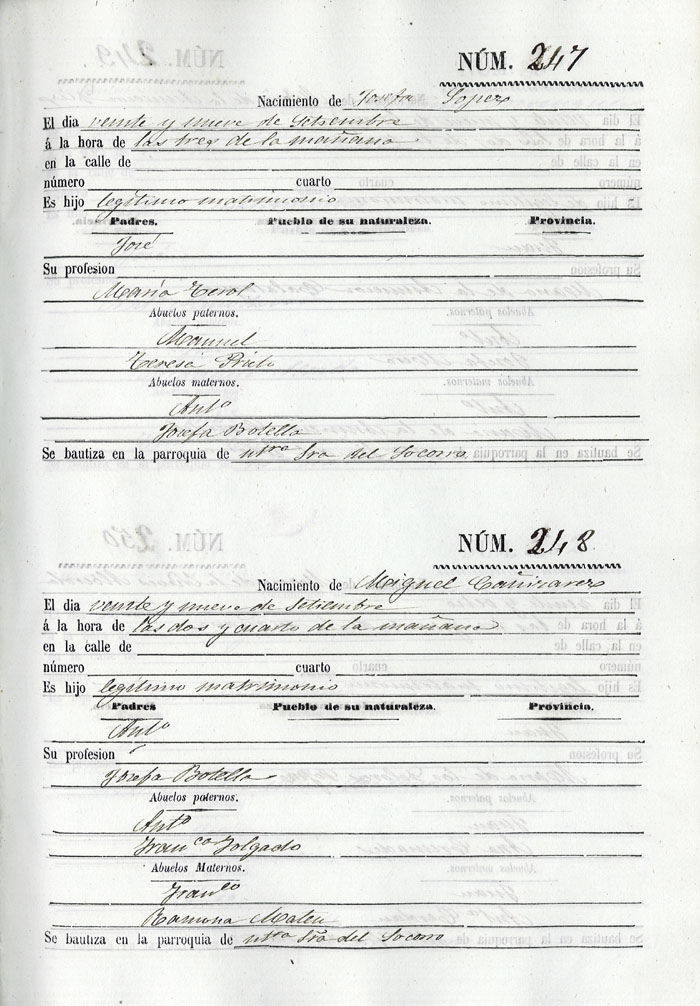 NÚM. 247
Nacimiento de Josefa Lopez
El dia veinte y nueve de Setiembre
á la hora de las tres de la mañana
en la calle de
número cuarto
Es hijo legítimo matrimonio
Padres. Pueblo de su naturaleza. Provincia.
José
Su profesion
María Terol
Abuelos paternos.
Manuel
Teresa Prieto
Abuelos maternos.
Anto
Josefa Botella
Se bautiza en la parroquia de ntra Sra del Socorro
NÚM. 248
Nacimiento de Miguel Cañizares
El dia veinte y nueve de Setiembre
á la hora de las dos y cuarto de la mañana
en la calle de
número cuarto
Es hijo legítimo matrimonio
Padres Pueblo de su naturaleza. Provincia.
Anto
Su profesion
Josefa Botella
Abuelos paternos.
Anto
Franca Folgado
Abuelos Maternos.
Franco
Ramona Mateu
Se bautiza en la parroquia de ntra Sra del Socorro